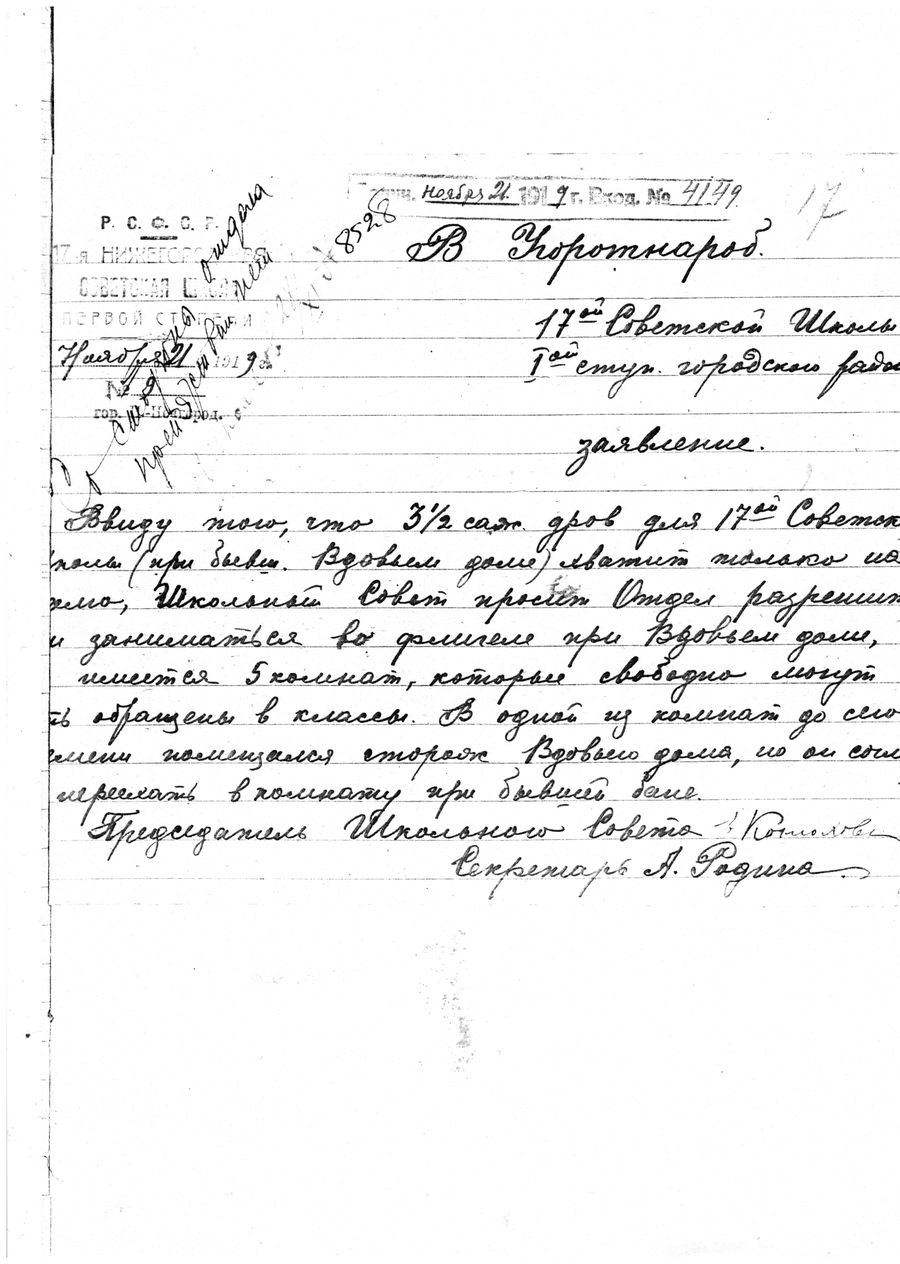 Ноября 21 1919 г. Вход. № 4149
17
Р. С. Ф. С. Р.
17-я НИЖЕГОРОДСКАЯ
СОВЕТСКАЯ ШКОЛА
ПЕРВОЙ СТУПЕНИ
Ноября 21 1919
№
гор. Н-Новгород.
отдела
8528
В Горотнароб.
17ой Советской Школы
Iой ступ. городского райо
заявление.
Ввиду того, что 3 1/2 саж. дров для 17ой Советск
колы (при бывш. Вдовьем доме) хватит только на
Школьный Совет просит Отдел разрешит
и заниматься во флигеле при Вдовьем доме,
имеется 5 комнат, которые свободно могут
ть обращены в классы. В одной из комнат до сего
емени помещался сторож Вдовьего дома, но он согл
переехать в комнату при бывшей бане.
Председатель Школьного Совета
Секретарь А. Родина